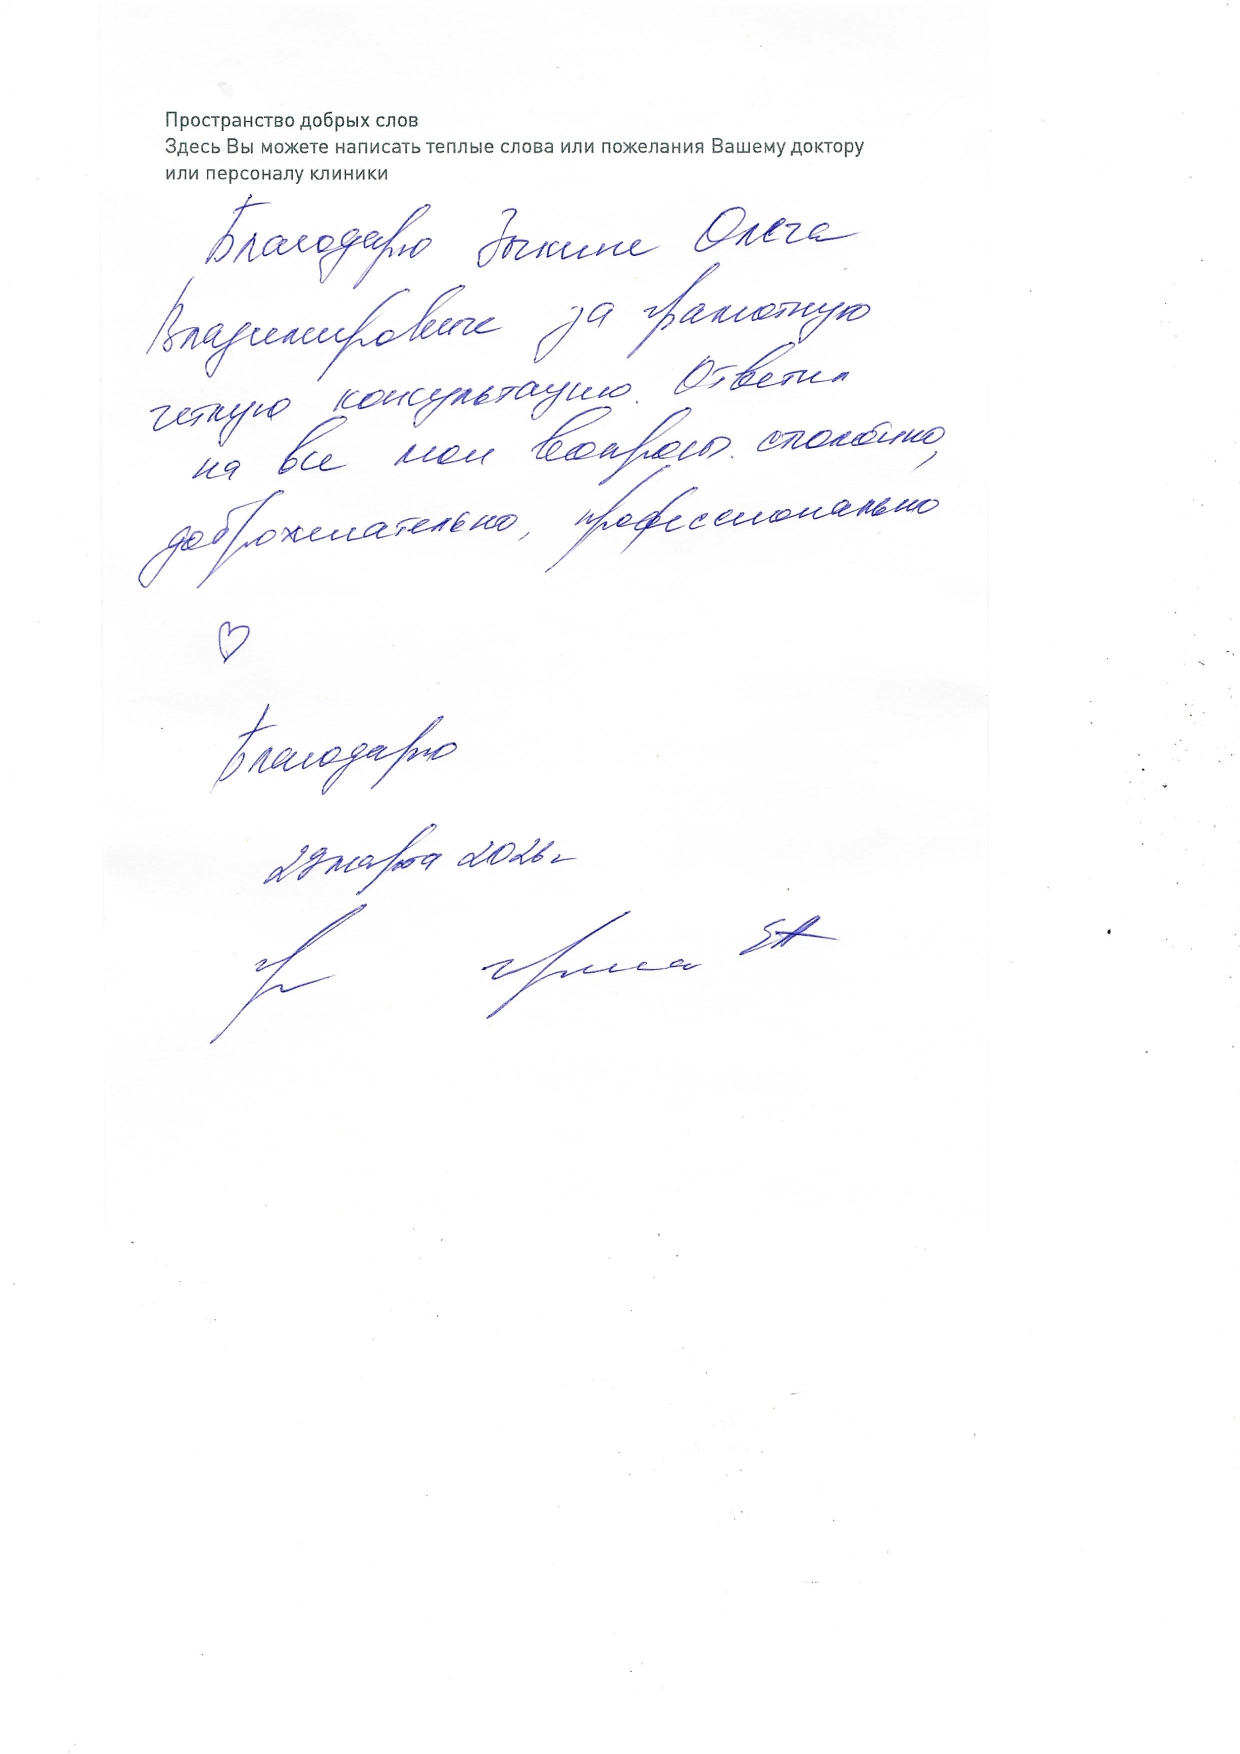 Пространство добрых слов
Здесь Вы можете написать теплые слова или пожелания Вашему доктору
или персоналу клиники
Благодарю Зыкина Олега
Владимировича за грамотную
четкую консультацию. Ответил
на все мои вопросы. спокойно,
доброжелательно, профессионально
Благодарю
29 марта 2026 г